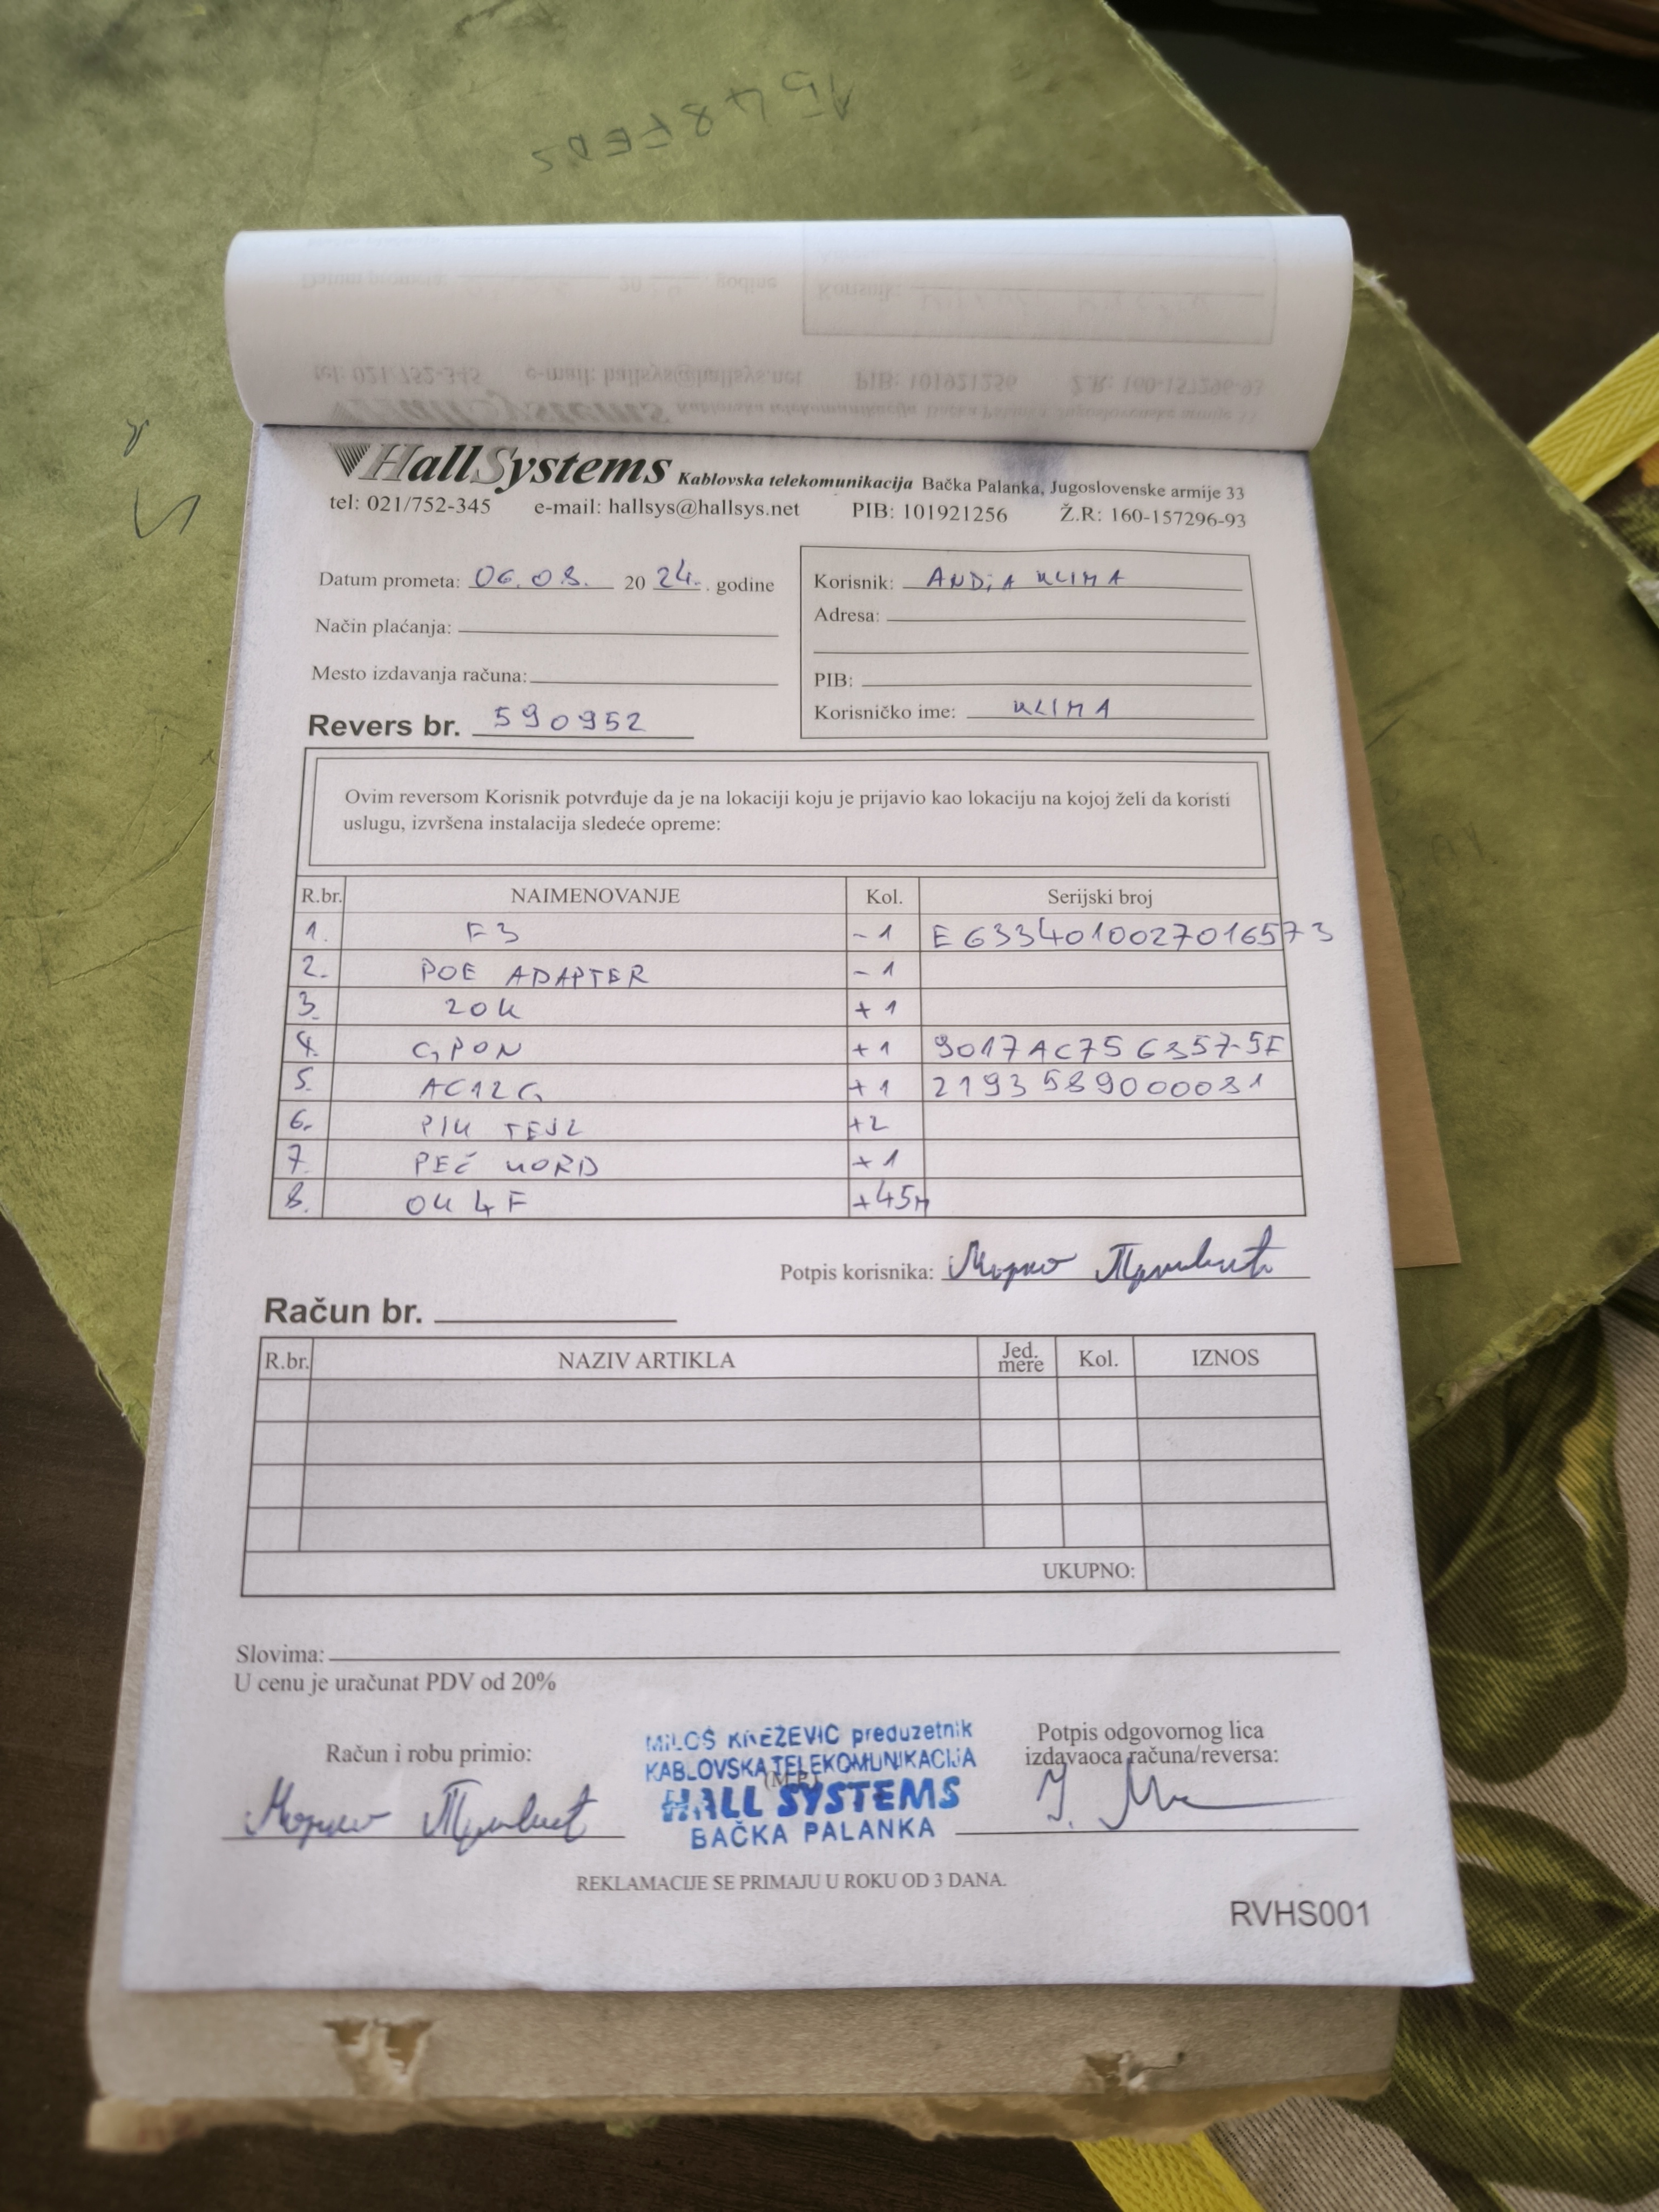 HallSystems Kablovska telekomunikacija Bačka Palanka, Jugoslovenske armije 33
tel: 021/752-345 e-mail: hallsys@hallsys.net PIB: 101921256 Ž.R: 160-157296-93
Datum prometa: 06.08. 20 24. godine
Način plaćanja:
Mesto izdavanja računa:
Revers br. 590952
Korisnik: ANDJA KLIMA
Adresa:
PIB:
Korisničko ime: KLIMA
Ovim reversom Korisnik potvrđuje da je na lokaciji koju je prijavio kao lokaciju na kojoj želi da koristi
uslugu, izvršena instalacija sledeće opreme:
R.br. NAIMENOVANJE Kol. Serijski broj
1. F3 -1 E6334010027016573
2. POE ADAPTER -1
3. 20K +1
4. GPON +1
5. AC12G +1
6. +2
7. +1
8. OK 4F +45M
Potpis korisnika: Марко
Račun br.
R.br. NAZIV ARTIKLA Jed. mere Kol. IZNOS
UKUPNO:
Slovima:
U cenu je uračunat PDV od 20%
Račun i robu primio:
Марко
MILOŠ KNEŽEVIĆ preduzetnik
KABLOVSKA TELEKOMUNIKACIJA
(M.P.)
HALL SYSTEMS
BAČKA PALANKA
Potpis odgovornog lica
izdavaoca računa/reversa:
REKLAMACIJE SE PRIMAJU U ROKU OD 3 DANA.
RVHS001